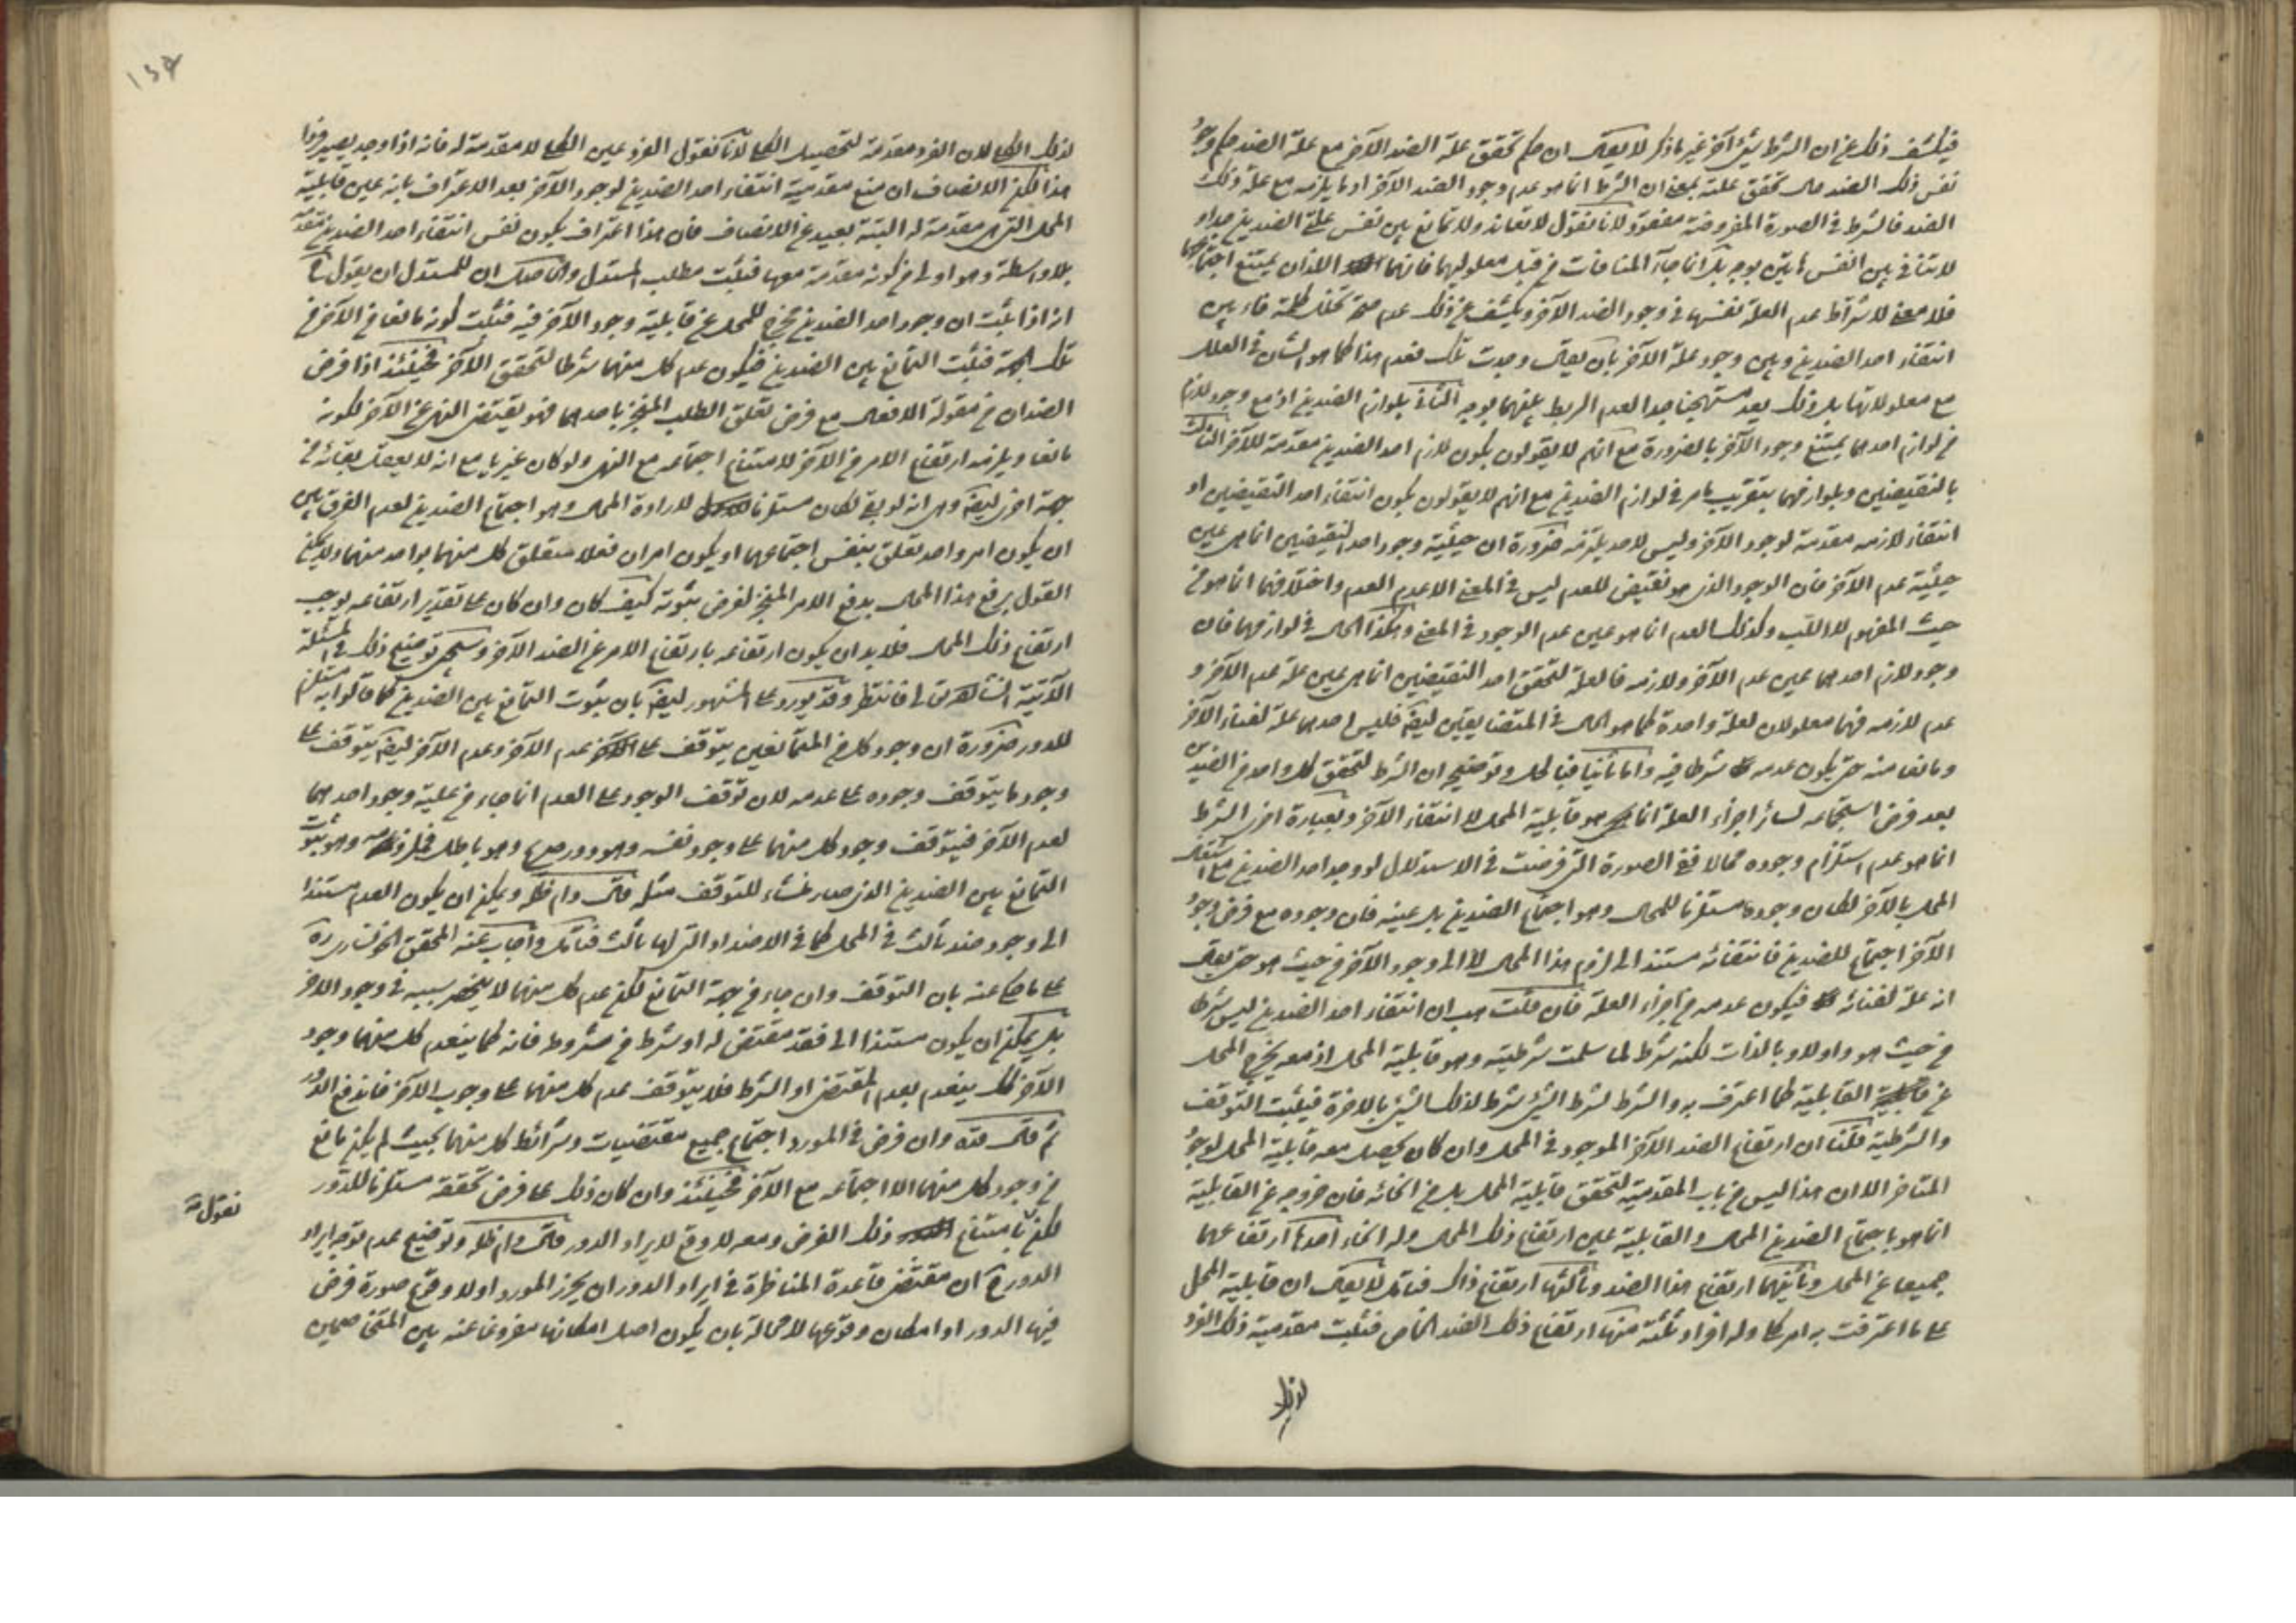 فيكشف ذلك عن ان الشرط شئ آخر غير ما ذكر لا يقال ان حكم تحقق علة الضد الآخر مع علة الضد حكم وجود
نفس ذلك الضد حال تحقق علته بمعنى ان الشرط انما هو عدم وجود الضد الآخر او ما يلزمه مع علة ذلك
الضد فالشرط في الصورة المفروضة مفقود لانا نقول لا تعاند ولا تمانع بين نفس علتي الضدين
لا تنافي بين انفسهما بوجه بل انما جاء المنافات من قبل معلوليهما فانهما اللذان يمتنع اجتماعهما
فلا معنى لاشتراط عدم العلة نفسها في وجود الضد الآخر ويكشف عن ذلك عدم صحة تخلل كلمة فاء بين
انتفاء احد الضدين وبين وجود علة الآخر بان يقال وجدت تلك فعدم هذا كما هو الشأن في العلل
مع معلولاتها بل ذلك يعد مستهجنا جدا لعدم الربط بينهما بوجه الثاني بلوازم الضدين اذ مع وجود لازم
من لوازم احدهما يمتنع وجود الآخر بالضرورة مع انهم لا يقولون بكون لازم احد الضدين مقدمة للآخر الثالث
بالنقيضين وبلوازمهما بتقريب ما مر في لوازم الضدين مع انهم لا يقولون بكون انتفاء احد النقيضين او
انتفاء لازمه مقدمة لوجود الآخر وليس لاحد يلتزمه ضرورة ان حيثية وجود احد النقيضين انما هي عين
حيثية عدم الآخر فان الوجود الذي هو نقيض للعدم ليس في المعنى الا عدم العدم واختلافهما انما هو من
حيث المفهوم لا اللب وكذلك العدم انما هو عين عدم الوجود في المعنى وهكذا الحال في لوازمهما فان
وجود لازم احدهما عين عدم الآخر ولازمه فالعلة لتحقق احد النقيضين انما هي عين علة عدم الآخر و
عدم لازمه فهما معلولان لعلة واحدة كما هو الحال في المتضايفين ايضا فليس احدهما علة لفناء الآخر
ومانعا منه حتى يكون عدمه شرطا فيه واما ثانيا فبالحل وتوضيحه ان الشرط لتحقق كل واحد من الضدين
بعد فرض استجماعه لسائر اجزاء العلة انما هو قابلية المحل لا انتفاء الآخر وبعبارة اخرى الشرط
انما هو عدم استلزام وجوده محالا ففي الصورة التي فرضت في الاستدلال لو وجد احد الضدين مع اشتغال
المحل بالآخر لكان وجوده مستلزما للمحال وهو اجتماع الضدين بل عينه فان وجوده مع فرض وجود
الآخر اجتماع للضدين فانتفائه مستند الى لزوم هذا المحال لا الى وجود الآخر من حيث هو حتى يقال
انه علة لفنائه فيكون عدمه من اجزاء العلة فان قلت هب ان انتفاء احد الضدين ليس شرطا
من حيث هو واولا وبالذات لكنه شرط لما سلمت شرطيته وهو قابلية المحل اذ معه يخرج المحل
عن القابلية كما اعترف به والشرط لشرط الشئ شرط لذلك الشئ بالاخرة فيثبت التوقف
والشرطية قلنا ان ارتفاع الضد الآخر الموجود في المحل وان كان يحصل معه قابلية المحل لوجود
المتاخر الا ان هذا ليس من باب المقدمية لتحقق قابلية المحل بل من انحائه فان خروجه عن القابلية
انما هو باجتماع الضدين المحال والقابلية عين ارتفاع ذلك المحال وله انحاء احدها ارتفاعهما
جميعا عن المحل وثانيهما ارتفاع هذا الضد وثالثها ارتفاع ذاك فتأمل لا يقال ان قابلية المحل
على ما اعترفت به امر كلي وله افراد ثلثة منها ارتفاع ذلك الضد الخاص فثبت مقدمية ذلك الفرد
لذلك الكلي لان الفرد مقدمة لتحصيل الكلي لانا نقول الفرد عين الكلي لا مقدمة له فانه اذا وجد يصير فردا
هذا لكن الانصاف ان منع مقدمية انتفاء احد الضدين لوجود الآخر بعد الاعتراف بانه عين قابلية
المحل التي هي مقدمة له البتة بعيد عن الانصاف فان هذا اعتراف بكون نفس انتفاء احد الضدين مقدمة
بلا واسطة وهو اولى من كونه مقدمة معها فثبت مطلب المستدل والحاصل ان للمستدل ان يقول
انه اذا ثبت ان وجود احد الضدين مخرج للمحل عن قابلية وجود الآخر فيه فثبت كونه مانعا من الآخر من
تلك الجهة فثبت التمانع بين الضدين فيكون عدم كل منهما شرطا لتحقق الآخر فحينئذ اذا فرض
الضدان من مقولة الافعال مع فرض تعلق الطلب المنجز باحدهما فهو يقتضى النهي عن الآخر لكونه
مانعا ويلزمه ارتفاع الامر من الآخر لامتناع اجتماعه مع النهي ولو كان غيريا مع انه لا يعقل بقائه من
جهة اخرى ايضا وهي انه لو بقي لكان مستلزما لارادة المحال وهو اجتماع الضدين لعدم الفرق بين
ان يكون امر واحد تعلق بنفس اجتماعهما او يكون امران فعلا متعلق كل منهما بواحد منهما ولا يمكن
القول برفع هذا المحال برفع الامر المنجز لفرض ثبوته كيف كان وان كان على تقدير ارتفاعه لوجب
ارتفاع ذلك المحال فلا بد ان يكون ارتفاعه بارتفاع الامر عن الضد الآخر وسيجئ توضيح ذلك في المسئلة
الآتية انشاء الله تعالى فانتظر وقد يورد على المشهور ايضا بان ثبوت التمانع بين الضدين كما قالوا به مستلزم
للدور ضرورة ان وجود كل من المتمانعين يتوقف على عدم الآخر وعدم الآخر ايضا يتوقف على
وجود ما يتوقف وجوده على عدمه لان توقف الوجود على العدم انما جاء من علية وجود احدهما
لعدم الآخر فيتوقف وجود كل منهما على وجود نفسه وهو دور صريح وهو باطل فملزومه وهو ثبوت
التمانع بين الضدين الذي صار منشاء للتوقف مثله قال دام ظله ويمكن ان يكون العدم مستندا
الى وجود ضد ثالث في المحل كما في الاضداد التي لها ثالث فتأمل واجاب عنه المحقق الخونساري ره
على ما حكي عنه بان التوقف وان جاء من جهة التمانع لكن عدم كل منهما لا ينحصر سببه في وجود الآخر
بل يمكن ان يكون مستندا الى فقد مقتض له او شرط من شروطه فانه كما ينعدم كل منهما بوجود
الآخر كك ينعدم بعدم المقتضى او الشرط فلا يتوقف عدم كل منهما على وجوب الآخر فاندفع الدور
ثم قال قده وان فرض في المورد اجتماع جميع مقتضيات وشرائط كل منهما بحيث لم يكن مانع
من وجود كل منهما الا اجتماعه مع الآخر فحينئذ وان كان ذلك على فرض تحققه مستلزما للدور
لكن نقول بامتناع ذلك الفرض ومعه لا وقع لايراد الدور قال دام ظله وتوضيح عدم توجه ايراد
الدور ح ان مقتضى قاعدة المناظرة في ايراد الدور ان يحرز المورد اولا وقوع صورة فرض
فيها الدور او امكان وقوعها لا محالة بان يكون اصل امكانها مفروغا عنه بين المتخاصمين